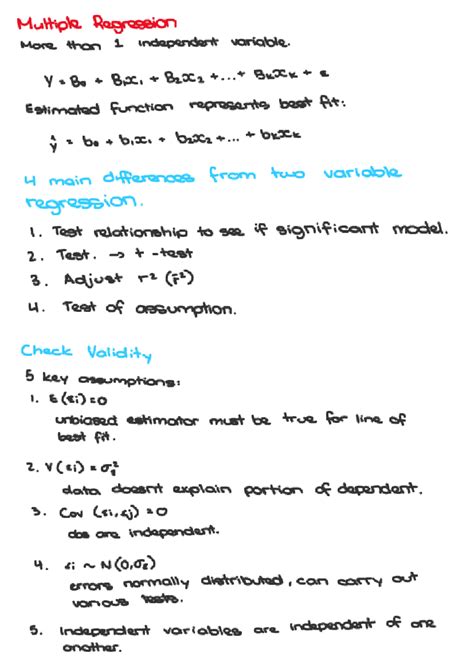 Multiple Regression
More than 1 independent variable.
Y = B₀ + B₁x₁ + B₂x₂ +...+ Bₖxₖ + ε
Estimated function represents best fit:
ŷ = b₀ + b₁x₁ + b₂x₂ +... + bₖxₖ
4 main differences from two variable
regression.
1. Test relationship to see if significant model.
2. Test. → t-test
3. Adjust r² (r̄²)
4. Test of assumption.
Check Validity
5 key assumptions:
1. E(εi)=0
unbiased estimator must be true for line of
best fit.
2. V(εi) = σ²
data doesnt explain portion of dependent.
3. Cov (εi,εj) = 0
obs are independent.
4. εi ~ N(0,σε)
errors normally distributed, can carry out
various tests.
5. Independent variables are independent of one
another.